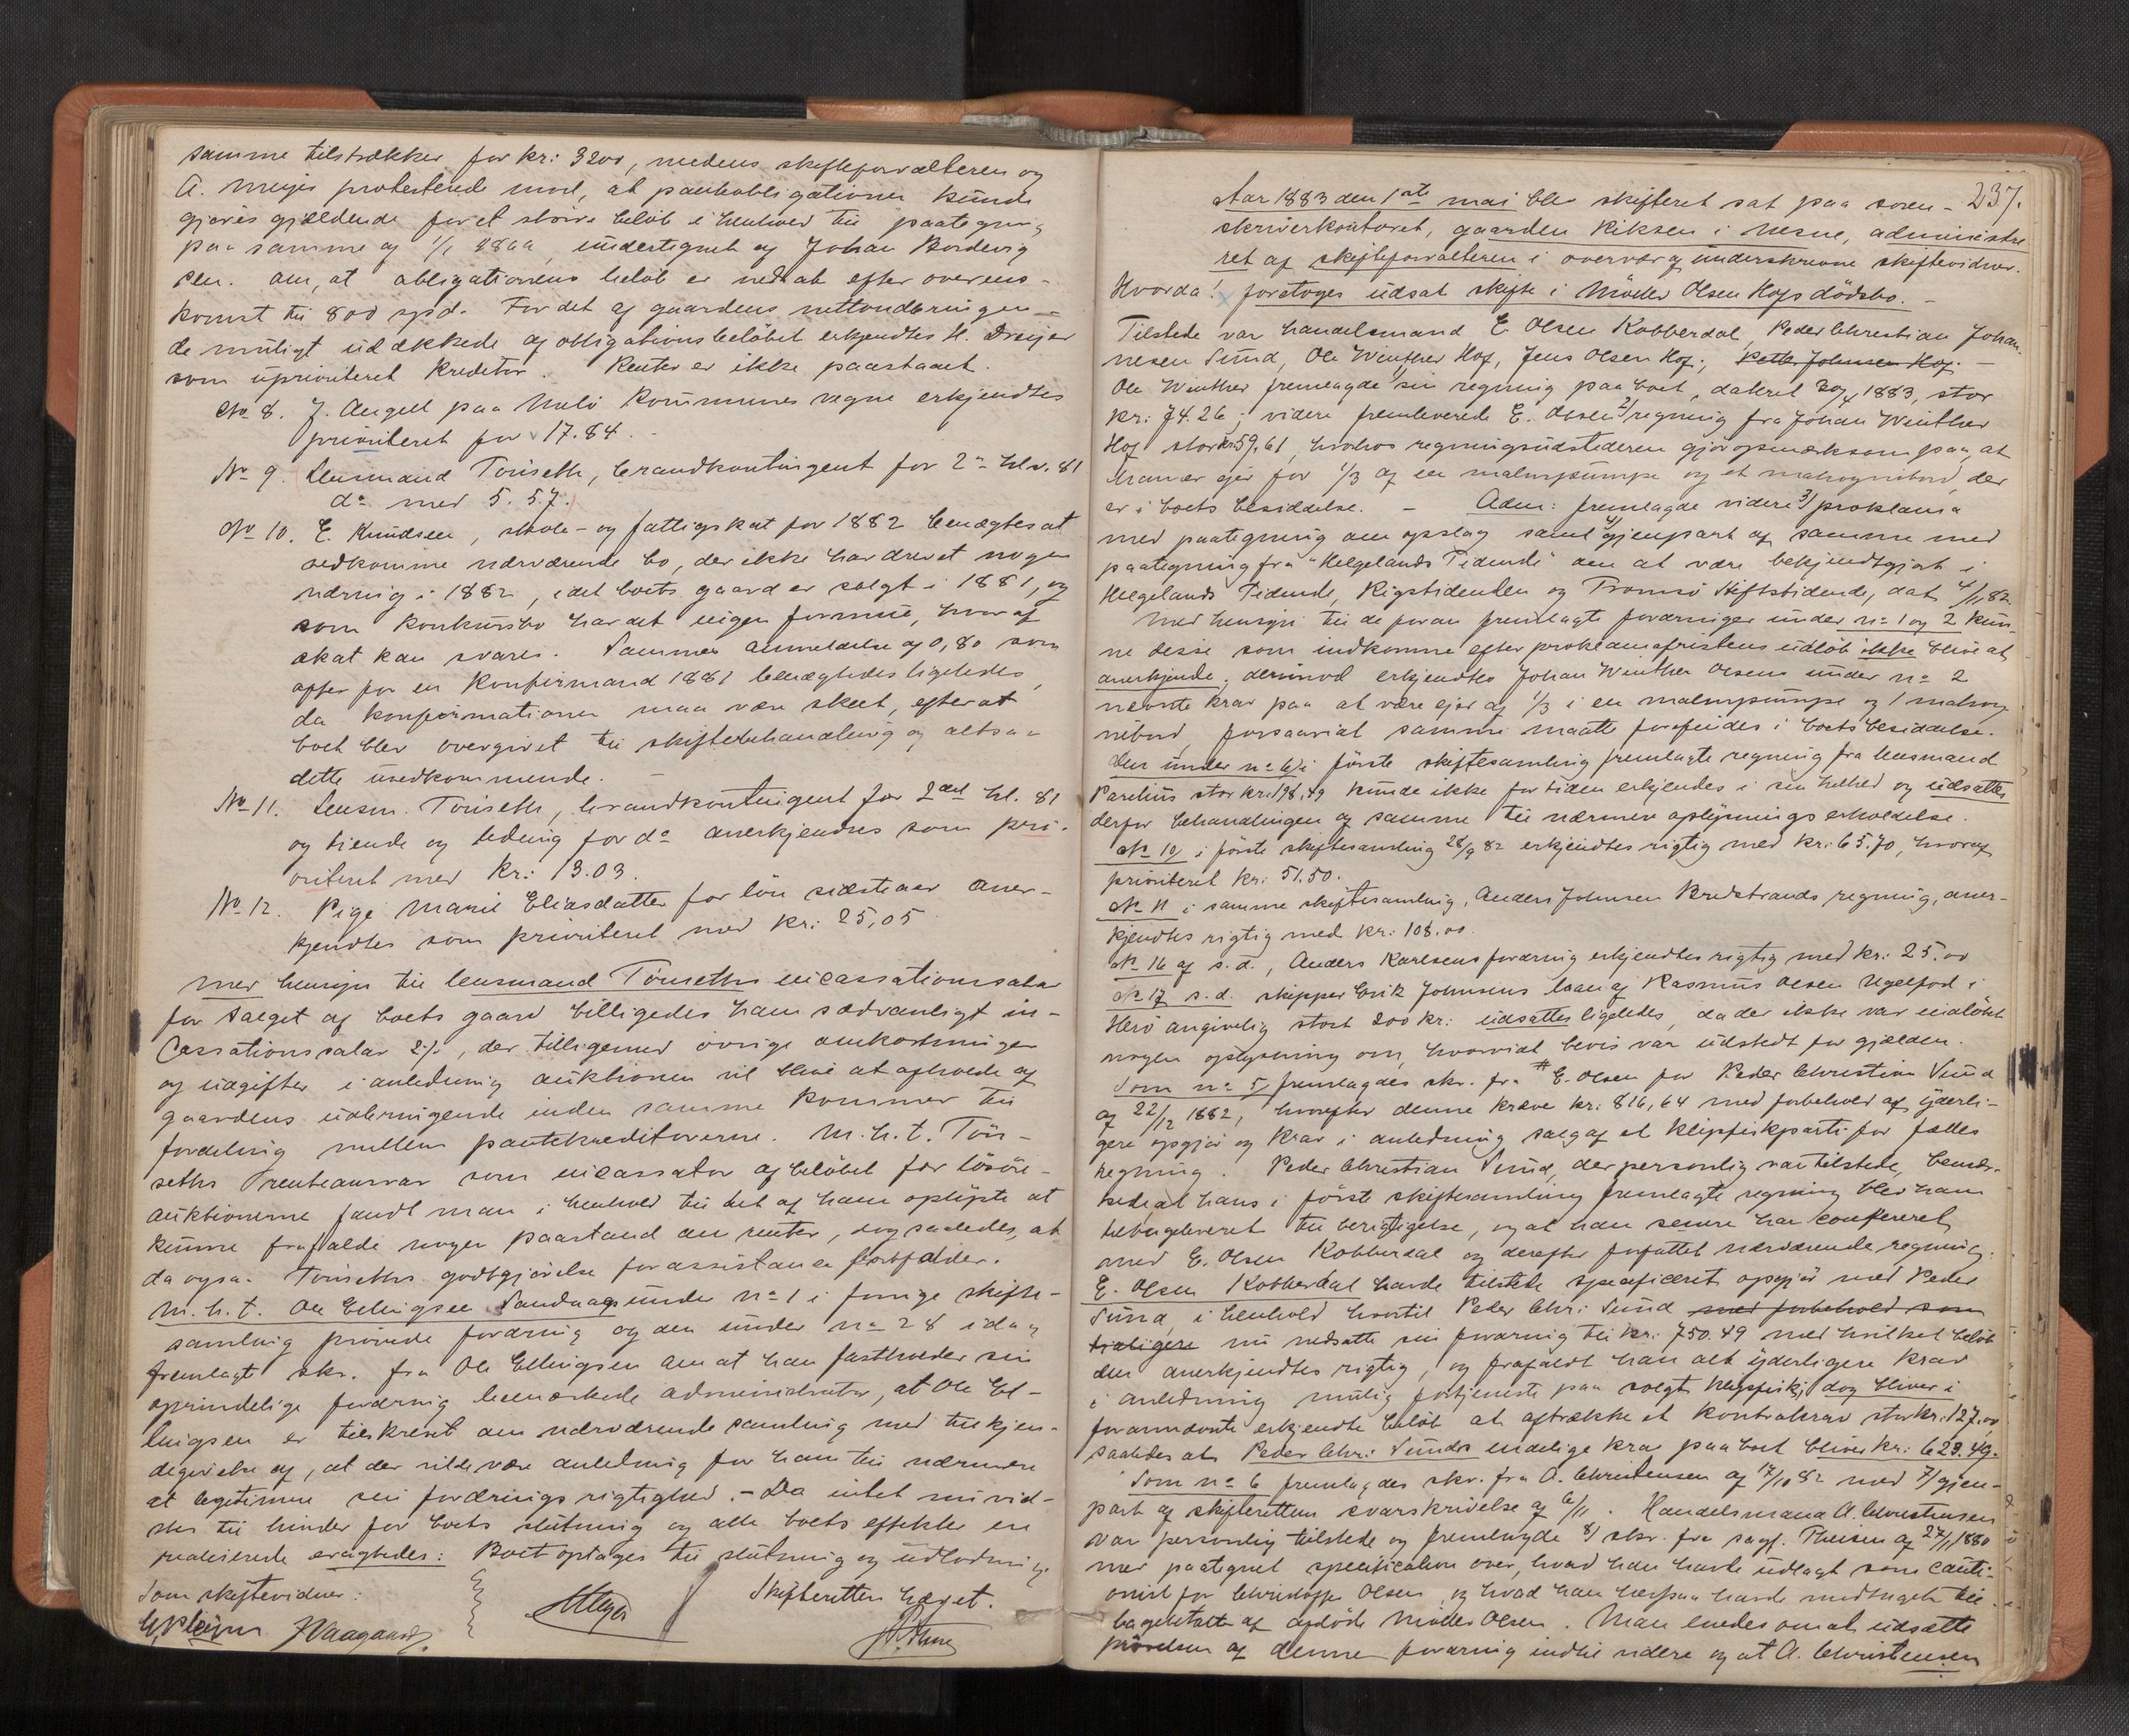 samme tilstrækker for kr: 3200, medens skifteforvalteren og
A. Meyer protesterede mod, at panteobligationen kunde
gjøres gjældende for et större belöb i henhold til paategning
paa samme af 1/1 undertegnet af Johan Bordevig
sen. om, at obligationens belöb er nedsat efter overens-
komst til 800 spd. For det af gaardens nettoudbringen-
de muligt udækkede af obligationsbelöbet erkjendtes H. Dreyer
som uprioriteret kreditor. Renter er ikke paastaaet.
No 8. J. Angell paa Melö kommunes vegne erkjendtes
prioriteret for 17.84.
No 9. Lensmand Tönseth, brandkontingent for 2n hlv. 81
do med 5.57.
No 10. E. Knudsen, skole- og fattigskat for 1882 benægtes at
vedkomme nærværende bo, der ikke har drevet nogen
næring i 1882, idet boets gaard er solgt i 1881, og
som konkursbo har det ingen formue, hvoraf
skat kan svares. Sammes anmeldelse af 0,80 som
offer for en konfirmand 1881 benægtedes ligeledes,
da konfirmationen maa være skeet, efterat
boet blev overgivet til skiftebehandling og altsaa
dette uvedkommende.
No 11. Lensm. Tönseth, brandkontingent for 2det hl. 81
og tiende og leding for do anerkjendtes som pri-
oriteret med kr: 13.03.
No 12. Pige Marie Eliasdatter for lön sidste aar aner-
kjendtes som prioriteret med kr: 25,05
Med hensyn til lensmand Tönseths incassationssalar
for salget af boets gaard billigedes ham sædvanligt in-
cassationssalar 2%, der tilligemed övrige omkostninger
og udgifter i anledning auktionen vil blive at afholde af
gaardens udbringende inden samme kommer til
fordeling mellem pantekreditorerne. M.h.t. Tön-
seths renteansvar som incassator af belöbet for lösöre-
auktionerne fandt man i henhold til det af ham oplyste at
kunne frafalde nogen paastand om renter, dog saaledes, at
da ogsaa Tönseths godtgjörelse for assistance bortfalder.
M.h.t. Ole Ellingsen Sandaags under no 1 i forrige skifte-
samling prövede fordring og den under no 28 idag
fremlagt skr. fra Ole Ellingsen om at han fastholder sin
oprindelige fordring bemærkede administrator, at Ole El-
lingsen er tilskrevet om nærværende samling med tilkjen-
degivelse af, at der vilde være anledning for ham til nærmere
at legitimere sin fordrings rigtighed. - Da intet nu vid-
stes til hinder for boets slutning og alle boets effekter er
realiserede eragtedes: Boet optages til slutning og udlodning.
Som skiftevidner: Skifteretten hævet.
J Vaagaard. AMeyer
237.
Aar 1883 den 1ste mai blev skifteret sat paa soren-
skriverkontoret, gaarden Riksen i Nesne, administre
ret af skifteforvalteren i overvær af underskrevne skiftevidner.
Hvorda! foretoges udsat skifte i Möller Olsen Hofs dödsbo. -
Tilstede var handelsmand E. Olsen Kobberdal, Peder Christian Johan-
nesen Sund, Ole Winther Hof, Jens Olsen Hof, Peth. Johnsen Hof. -
Ole Winther fremlagde sin regning paa boet, dateret 20/4 1883, stor
kr: 74.26; videre fremleverede E. Olsen 2) regning fra Johan Winther
Hof stor kr: 59.61, hvorhos regningsudstederen gjör opmærksom paa, at
han er ejer for 1/3 af en malmpumpe og et mahognibord, der
er i boets besiddelse. - Adm: fremlagde videre 3) proklama
med paategning om opslag samt 4) gjenpart af samme med
paategning fra "Helgelands Tidende" om at være bekjendtgjort i
Helgelands Tidende, Rigstidenden og Tromsö Stiftstidende, dat 4/11 82.
Med hensyn til de foran fremlagte fordringer under no 1 og 2 kun-
ne disse som indkomne efter proklamafristens udlöb ikke blive at
anerkjende; derimod erkjendtes Johan Winther Olsens under no 2
nævnte krav paa at være ejer af 1/3 i en malmpumpe og 1 mahog-
nibord, forsaavidt samme maatte forefindes i boets besiddelse.
Den under no 6 i förste skiftesamling fremlagte regning fra lensmand
Parelius stor kr: 198,49 kunde ikke for tiden erkjendes i sin helhed og udsattes
derfor behandlingen af samme til nærmere oplysnings erholdelse.
No 10 i förste skiftesamling 28/9 82 erkjendtes rigtig med kr: 65.70, hvoraf
prioriteret kr: 51.50.
No 11 i samme skiftesamling, Anders Johnsen Bredstrands regning, aner-
kjendtes rigtig med kr: 108.00.
No 16 af s.d., Anders Karlsens fordring erkjendtes rigtig med kr: 25.00
No 17 s.d. skipper Erik Johnsens laan af Rasmus Olsen Ugelfod i
Herö angivelig stort 200 kr: udsattes ligeledes, da der ikke var indlöbet
nogen oplysning om, hvorvidt bevis var udstedt for gjælden.
Som no 5 fremlagdes skr. fra E. Olsen for Peder Christian Sund
af 22/12 1882, hvorefter denne kræve kr: 816,64 med forbehold af yderli-
gere opgjör og krav i anledning salg af et klipfiskparti for fælles
regning. Peder Christian Sund, der personlig var tilstede, bemær-
kede at hans i förste skiftesamling fremlagte regning blev ham
tilbageleveret til berigtigelse, og at han senere har confereret
med E. Olsen Kobberdal og derefter forfattet nærværende regning.
E. Olsen Kobberdal havde tilstede specificeret opgjör med Peder
Sund, i henhold hvortil Peder Chr: Sund med forbehold som
nu nedsatte sin fordring til kr: 750.49 med hvilket belöb
den anerkjendtes rigtig, og frafaldt han alt yderligere krav
i anledning mulig fortjeneste paa solgt klipfisk; dog bliver i
forannævnte erkjendte belöb at aftrække et kontrakrav stor kr: 127,00
saaledes at Peder Chr: Sunds endelige krav paa boet bliver kr: 623.49.
Som no 6 fremlagdes skr. fra A. Christensen af 17/10 82 med 7) gjen-
part af skifterettens svarskrivelse af 6/11. Handelsmand A. Christensen
var personlig tilstede og fremlagde 8) skr. fra sagf. Thiisen af 27/11 1880
med paategnet specification over, hvad han havde udlagt som cauti-
onist for Christoffer Olsen og hvad han herpaa havde modtaget til-
bagebetalt af afdöde Möller Olsen. Man enedes om at udsætte
prövelsen af denne fordring indtil videre og at A. Christensen